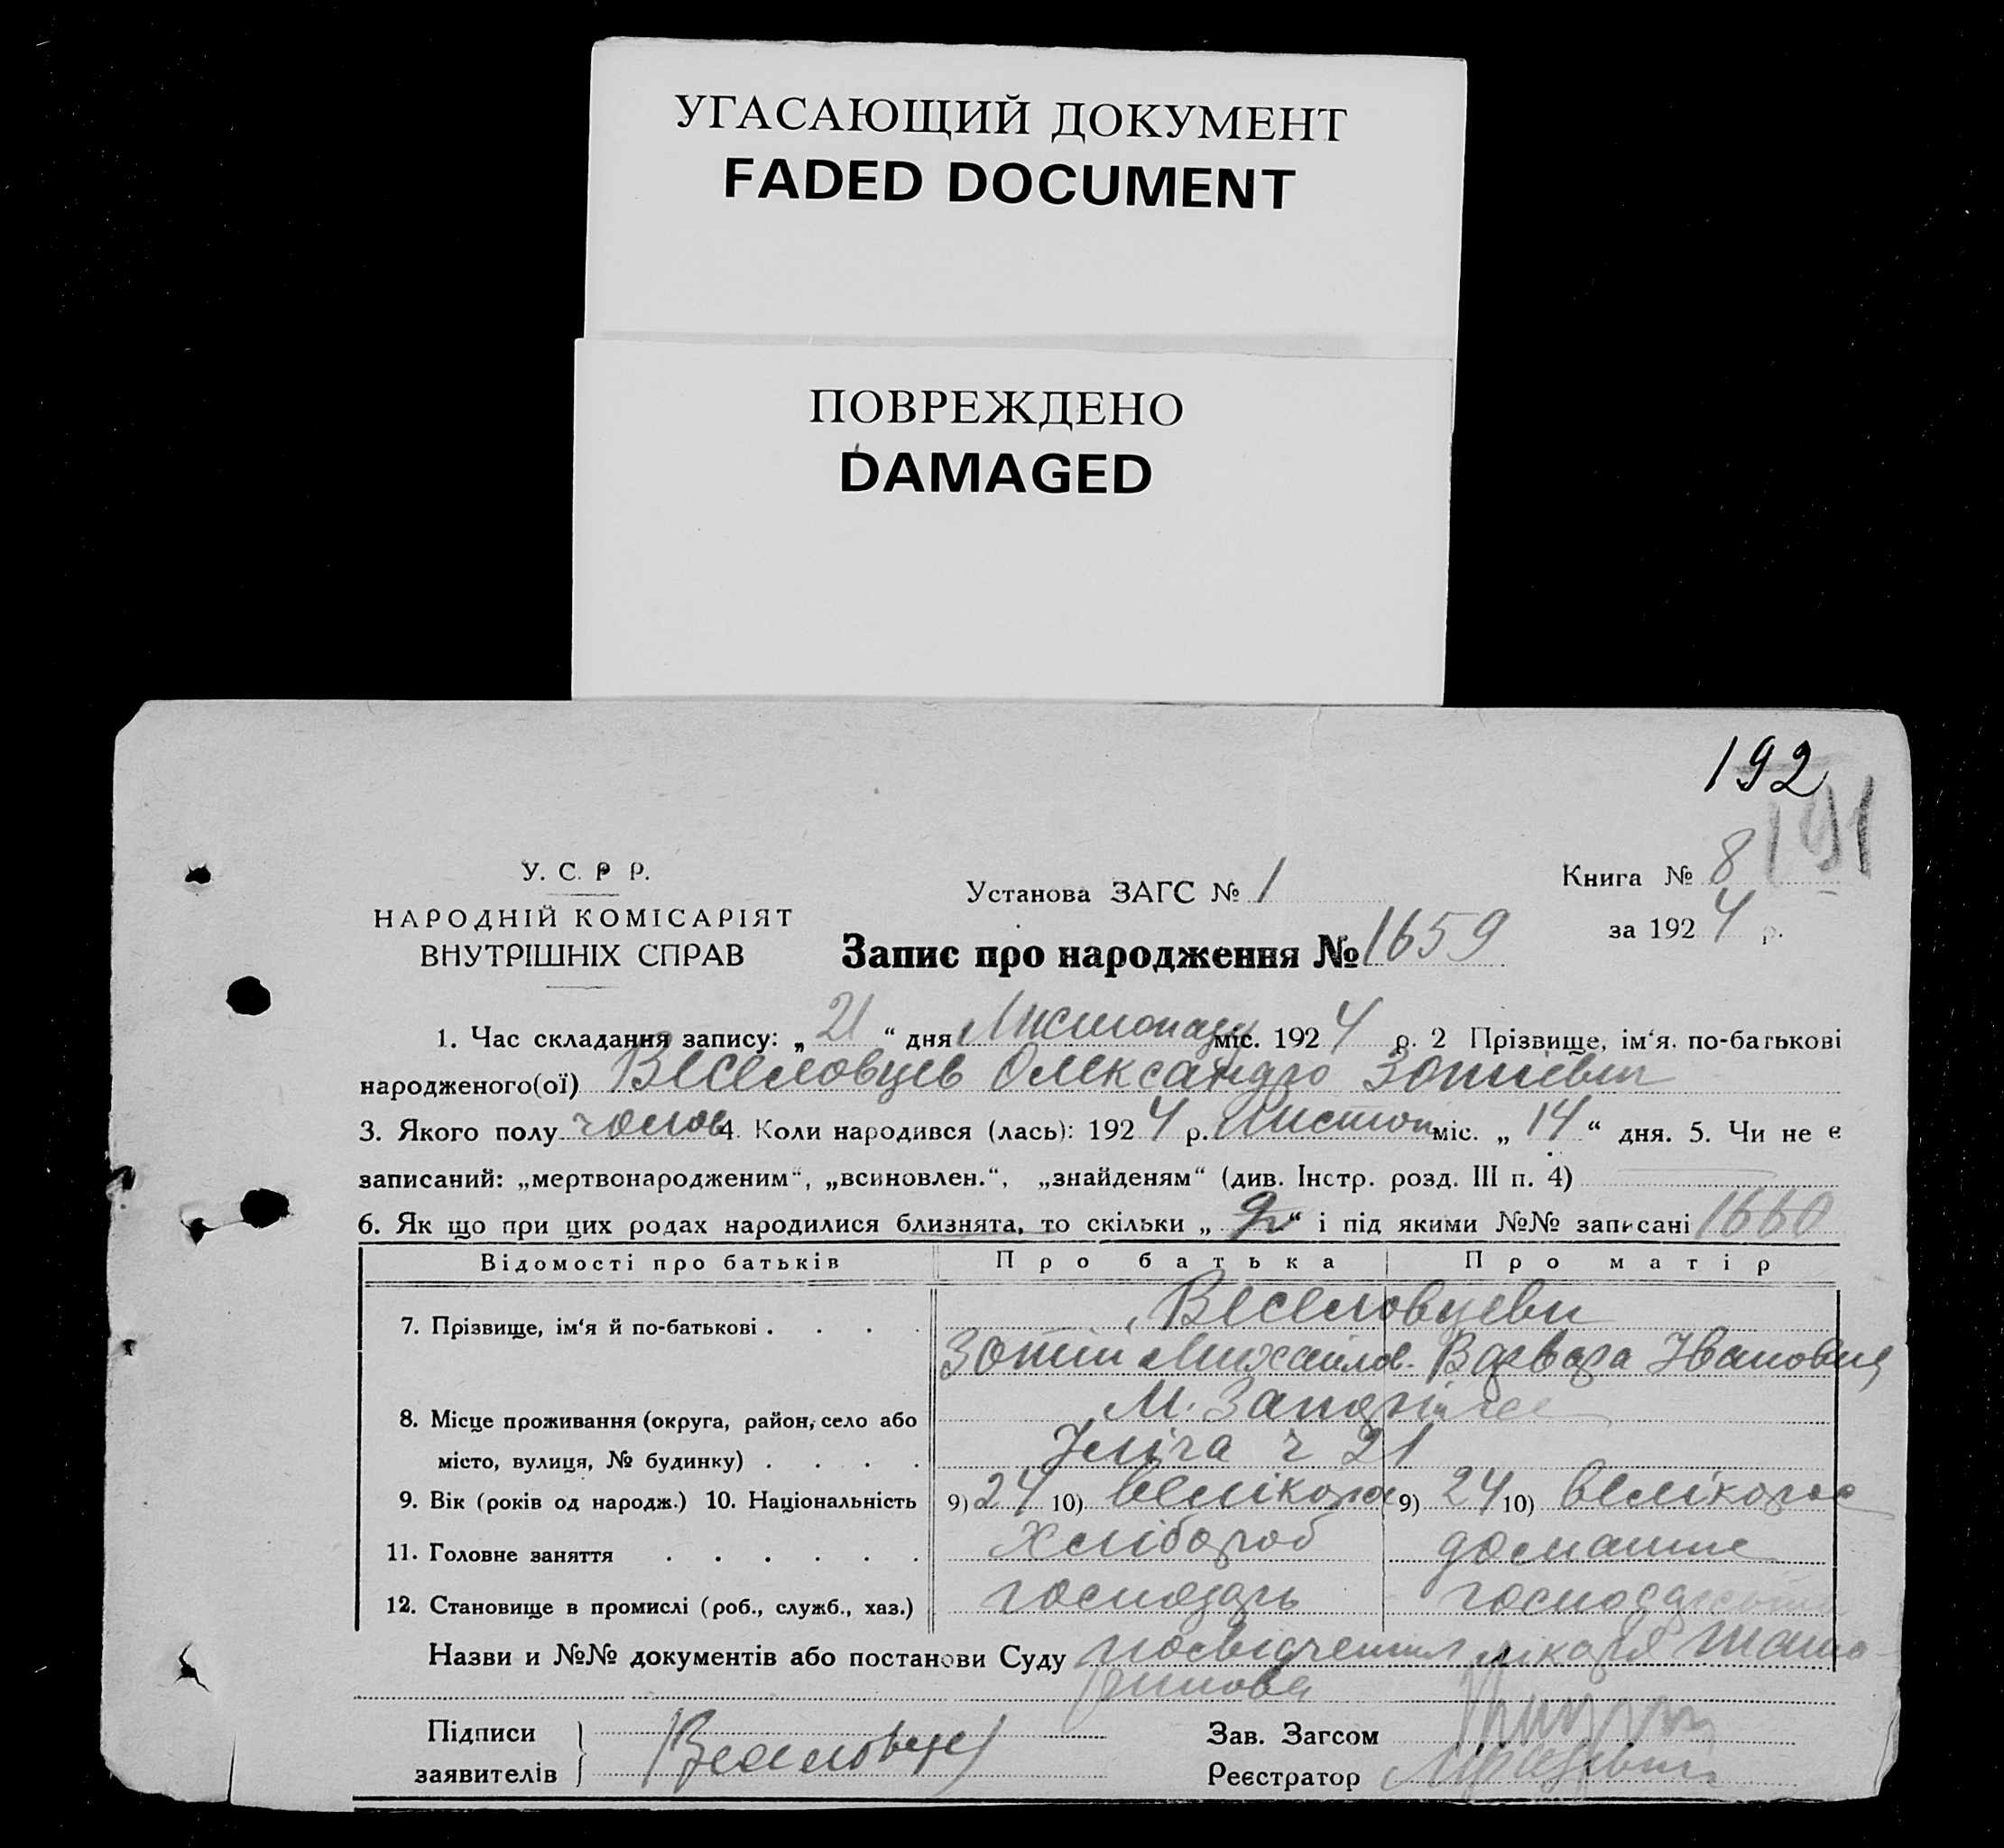 УГАСАЮЩИЙ ДОКУМЕНТ
FADED DOCUMENT
ПОВРЕЖДЕНО
DAMAGED
192
191
У. С. Р Р.
НАРОДНІЙ КОМІСАРІЯТ
ВНУТРІШНІХ СПРАВ
Установа ЗАГС № 1
Книга № 8
за 1924 р.
Запис про народження № 1659
1. Час складання запису: „ 21 “ дня Листопаду міс. 1924 р. 2 Прізвище, ім‘я. по-батькові
народженого(ої) Веселовцев Олександр Зотієвич
3. Якого полу чолов 4. Коли народився (лась): 1924 р. Листоп міс. „ 14 “ дня. 5. Чи не є
записаний: „мертвонародженим“, „всиновлен.“, „знайденям“ (див. Інстр. розд. III п. 4)
6. Як що при цих родах народилися близнята, то скільки „ “ і під якими №№ записані 1660
Відомості про батьків Про батька Про матір
7. Прізвище, ім‘я й по-батькові . . . . Веселовцеви
Зотій Михайлов. Варвара Івановна
8. Місце проживання (округа, район, село або М. Запоріжже
місто, вулиця, № будинку) . . . . Ілліча ч 21
9. Вік (років од народж.) 10. Національність 9) 24 10) велікорос 9) 24 10) велікорос
11. Головне заняття . . . . . . Хлібороб домашнє
12. Становище в промислі (роб., служб., хаз.) господарь
Назви и №№ документів або постанови Суду посвідчення лікаря
Підписи
заявителів Веселовцев
Зав. Загсом
Реєстратор